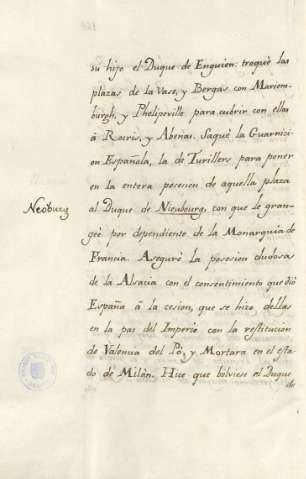 su hijo el Duque de Enguien: troquè las
plazas de la Vase, y Bergas con Mariem-
burgh, y Phelipeville para cubrir con ellas
à Rocris, y Abenas. Saquè la Guarnizi-
on Española, la de Turillers para poner
en la entera posecion de aquella plaza
Neoburg
al Duque de Nieubourg, con que le gran-
geè por dependiente de la Monarquia de
Francia. Asegurè la posesion dudosa
de la Alsacia con el consentimiento que diò
España â la cesion, que se hizo dellas
en la paz del Imperio con la restitucion
de Valencia del Pò, y Mortara en el esta-
do de Milàn. Hice que bolviese el Duque
de